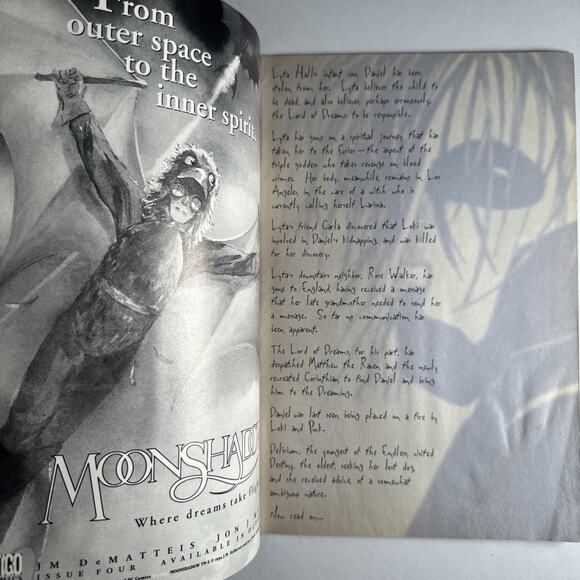 From
outer space
to the
inner spirit.
MOONSHADOW
Where dreams take flight
DeMATTEIS JON J
ISSUE FOUR AVAILABLE IN
DC Comics
Lyta Hall's infant son, Daniel has been
stolen from her. Lyta believes the child to
be dead, and also believes, perhaps erroneously,
the Lord of Dreams to be responsible.
Lyta has gone on a spiritual journey that has
taken her to the Furies — the aspect of the
triple goddess who takes revenge on blood
crimes. Her body, meanwhile, remains in Los
Angeles, in the care of a witch who is
currently calling herself Larissa.
Lyta's friend Carla discovered that Loki was
involved in Daniel's kidnapping, and was killed
for her discovery.
Lyta's downstairs neighbor, Rose Walker, has
gone to England, having received a message
that her late grandmother needed to send her
a message. So far no communication has
been apparent.
The Lord of Dreams, for his part, has
despatched Matthew the Raven and the newly
recreated Corinthian to find Daniel and bring
him to the Dreaming.
Daniel was last seen being placed on a fire by
Loki and Puck.
Delirium, the youngest of the Endless, visited
Destiny, the oldest, seeking her lost dog,
and she received advice, of a somewhat
ambiguous nature.
Now read on...